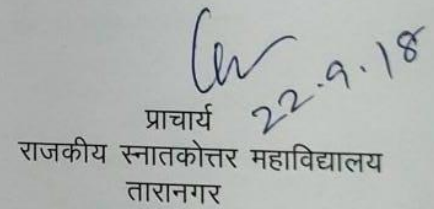 22.9.18
प्राचार्य
राजकीय स्नातकोत्तर महाविद्यालय
तारानगर